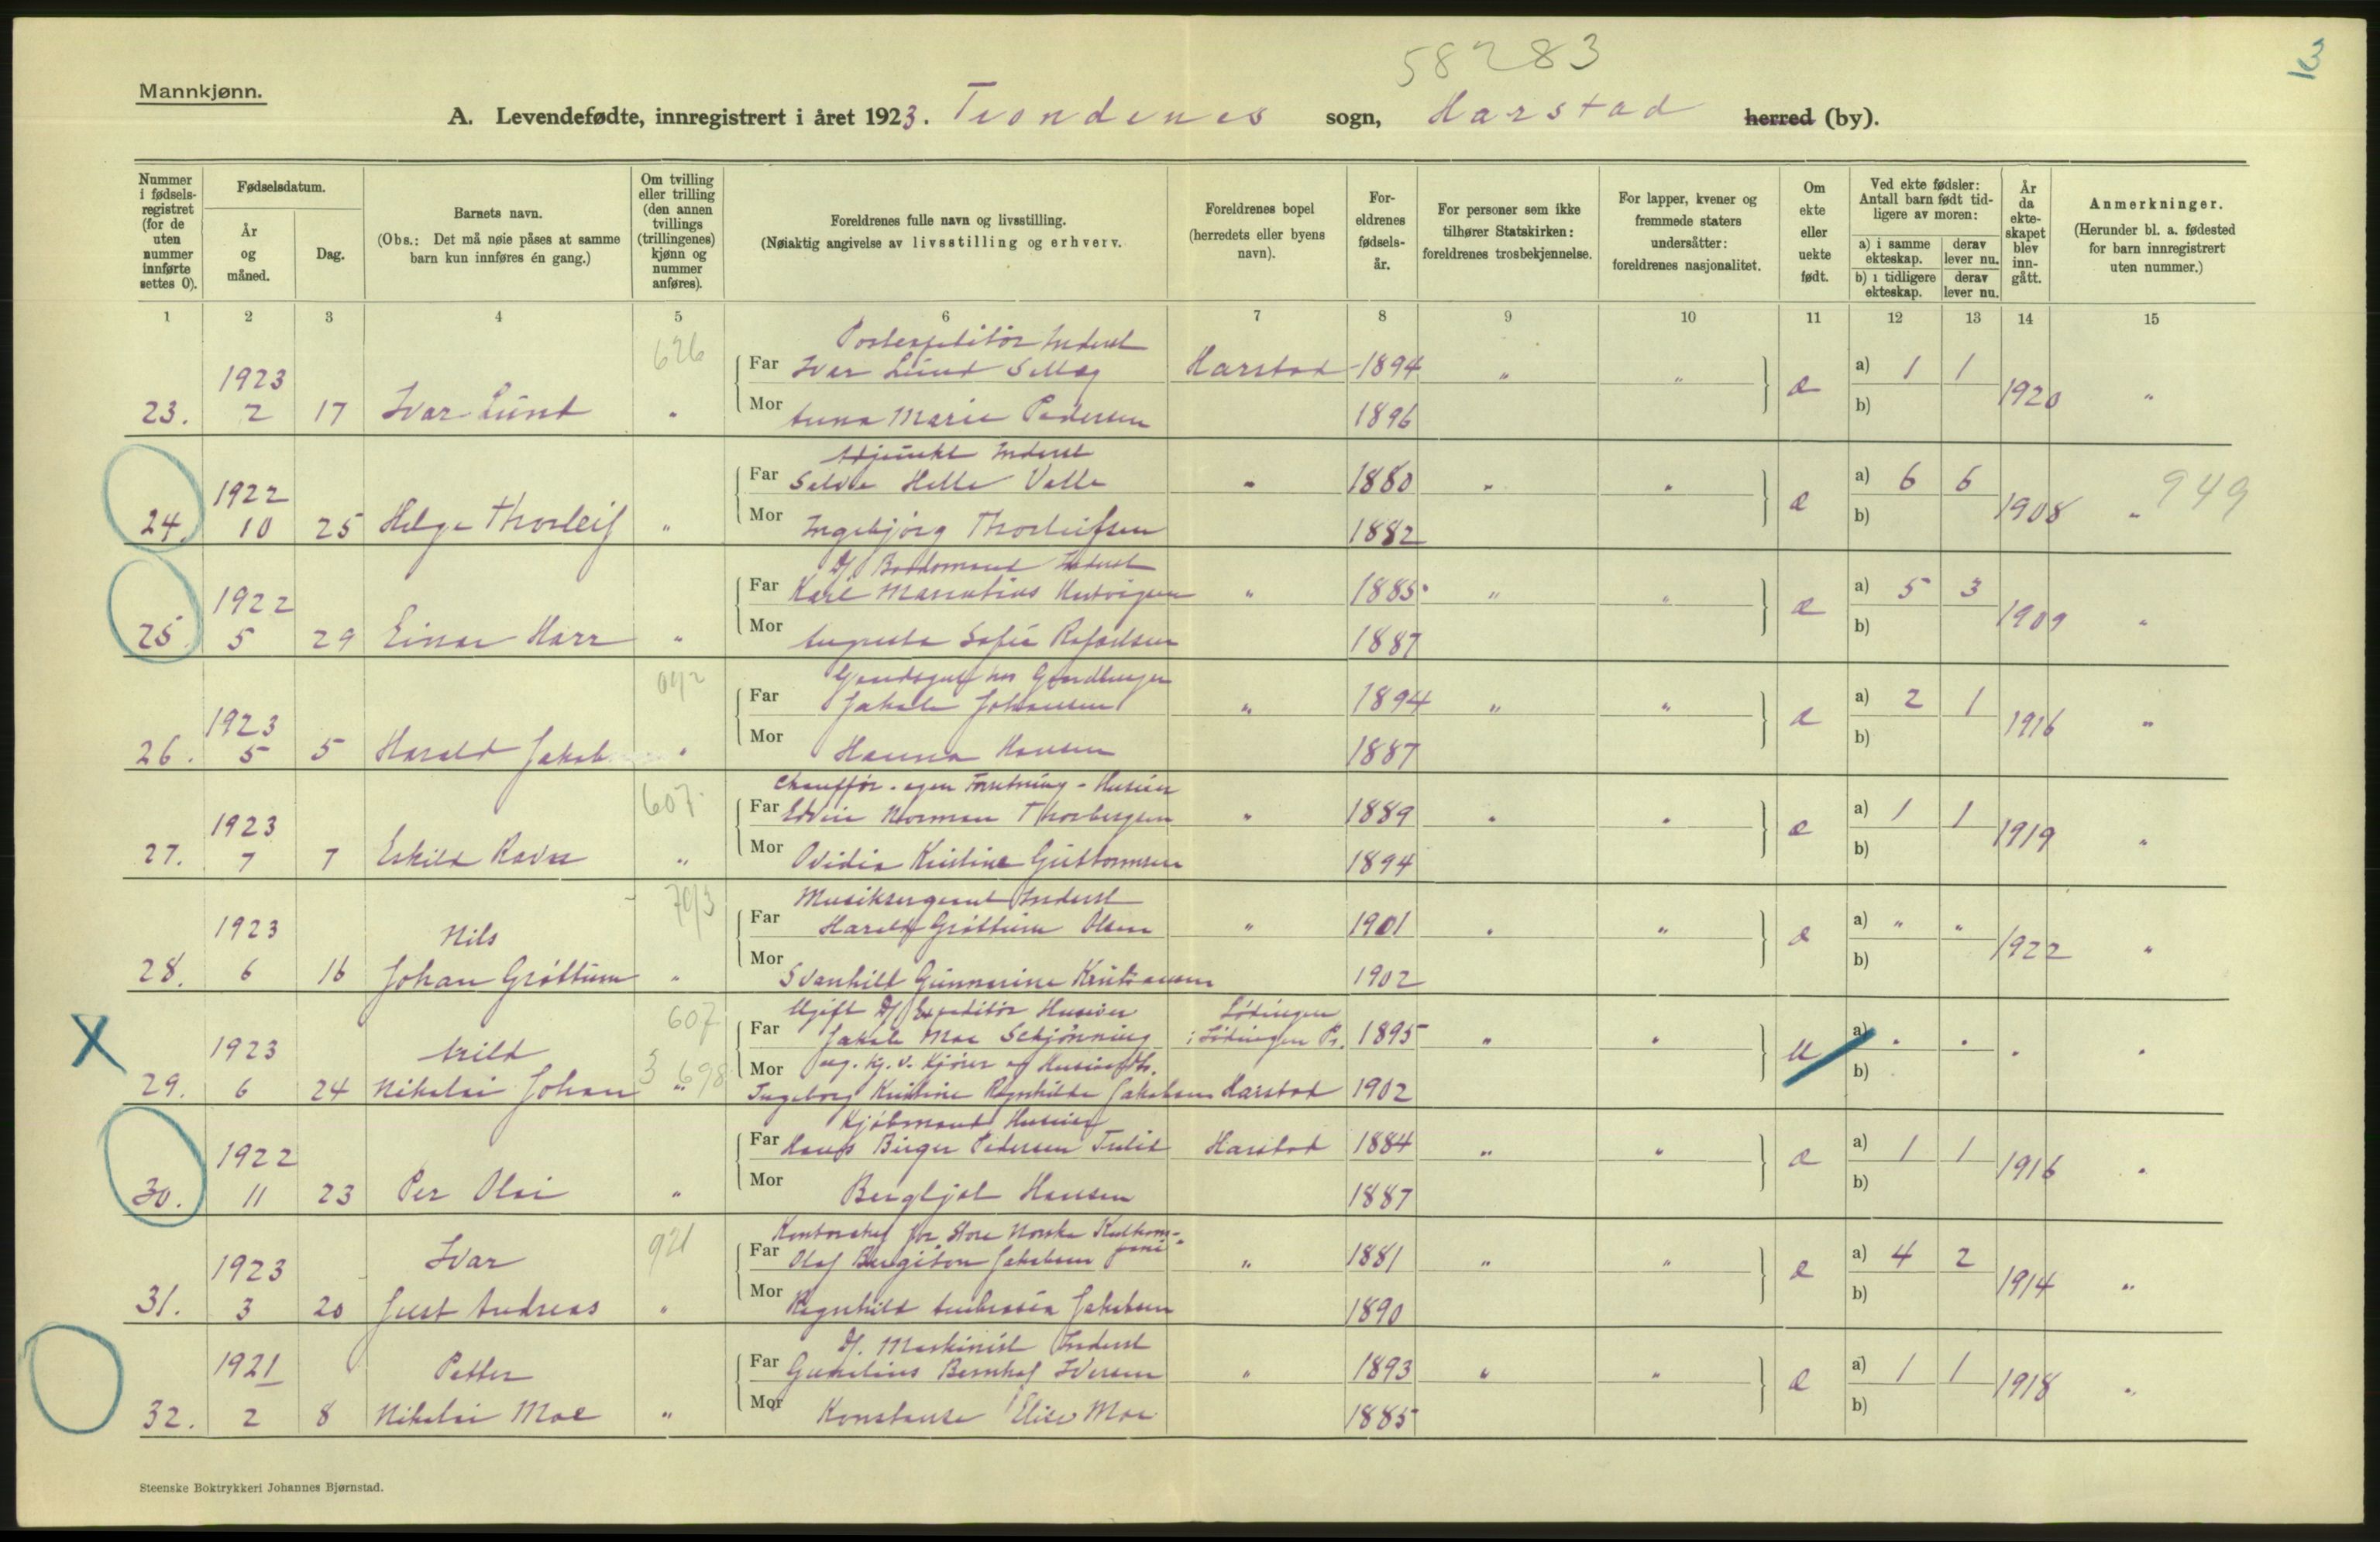 58283
Mannkjønn.
A. Levendefødte, innregistrert i året 1923. Trondenes sogn, Harstad herred (by).
Nummer i fødsels-registret (for de uten nummer innførte settes 0).
Fødselsdatum.
År og måned.
Dag.
Barnets navn.
(Obs.: Det må nøie påses at samme barn kun innføres én gang.)
Om tvilling eller trilling (den annen tvillings (trillingenes) kjønn og nummer anføres).
Foreldrenes fulle navn og livsstilling.
(Nøiaktig angivelse av livsstilling og erhverv.
Foreldrenes bopel (herredets eller byens navn).
For-eldrenes fødsels-år.
For personer som ikke tilhører Statskirken: foreldrenes trosbekjennelse.
For lapper, kvener og fremmede staters undersåtter: foreldrenes nasjonalitet.
Om ekte eller uekte født.
Ved ekte fødsler: Antall barn født tid-ligere av moren:
a) i samme ekteskap.
derav lever nu.
b) i tidligere ekteskap.
derav lever nu.
År da ekte-skapet blev inn-gått.
Anmerkninger.
(Herunder bl. a. fødested for barn innregistrert uten nummer.)
1 2 3 4 5 6 7 8 9 10 11 12 13 14 15
626 Postexpeditör Inderst
1923 Far Ivar Lund Sellæg Harstad 1894 " " e a) 1 1 1920 "
23. 2 17 Ivar Lund " Mor Anna Marie Pedersen 1896 b)
Adjunkt Inderst
1922 Far Helle Valle " 1880 " " e a) 6 6 1908 " 949
24. 10 25 Helge Thorleif " Mor Ingebjörg Thorleifsen 1882 b)
D/ Inderst
1922 Far Karl " 1885 " " e a) 5 3 1909 "
25. 5 29 Einar Harr " Mor Augusta Sofie Rafaelsen 1887 b)
1923 Far Jakob Johansen " 1894 " " e a) 2 1 1916 "
26. 5 5 Harald Jakob " Mor Hanna Hansen 1887 b)
607 Chaufför - egen Forretning - Huseier
1923 Far Edvin Norman Thorbergsen " 1889 " " e a) 1 1 1919 "
27. 7 7 Eskild Ravn " Mor Ovidia Kristine Guttormsen 1894 b)
Musiksergeant Inderst
1923 Nils Far Harald Gröttum Olsen " 1901 " " e a) " " 1922 "
28. 6 16 Johan Gröttum " Mor Svanhild Gunnarine Kristiansen 1902 b)
607 Ugift D/ Expeditör Huseier Lödingen
1923 Arild Far Jakob Moe Schjönning i Lödingen Pr. 1895 " " u a) " " " "
698 Mor ug.
29. 6 24 Nikolai Johan " Ingeborg Kristine Ragnhilda Jakobsen Harstad 1902 b)
Kjöbmand Huseier
1922 Far Hans Birger Pedersen Harstad 1884 " " e a) 1 1 1916 "
30. 11 23 Per Olai " Mor Bergljot Hansen 1887 b)
921 Kontorchef for Store Norske Kulkom-
1923 Ivar Far Olaf Jakobsen pani " 1881 " " e a) 4 2 1914 "
31. 3 20 Just Andreas " Mor Ragnhild Jakobsen 1890 b)
D/. Maskinist Inderst
1921 Petter Far Bernhof Iversen " 1893 " " e a) 1 1 1918 "
32. 2 8 Nikolai Moe " Mor Konstanse Elise Moe 1885 b)
Steenske Boktrykkeri Johannes Bjørnstad.